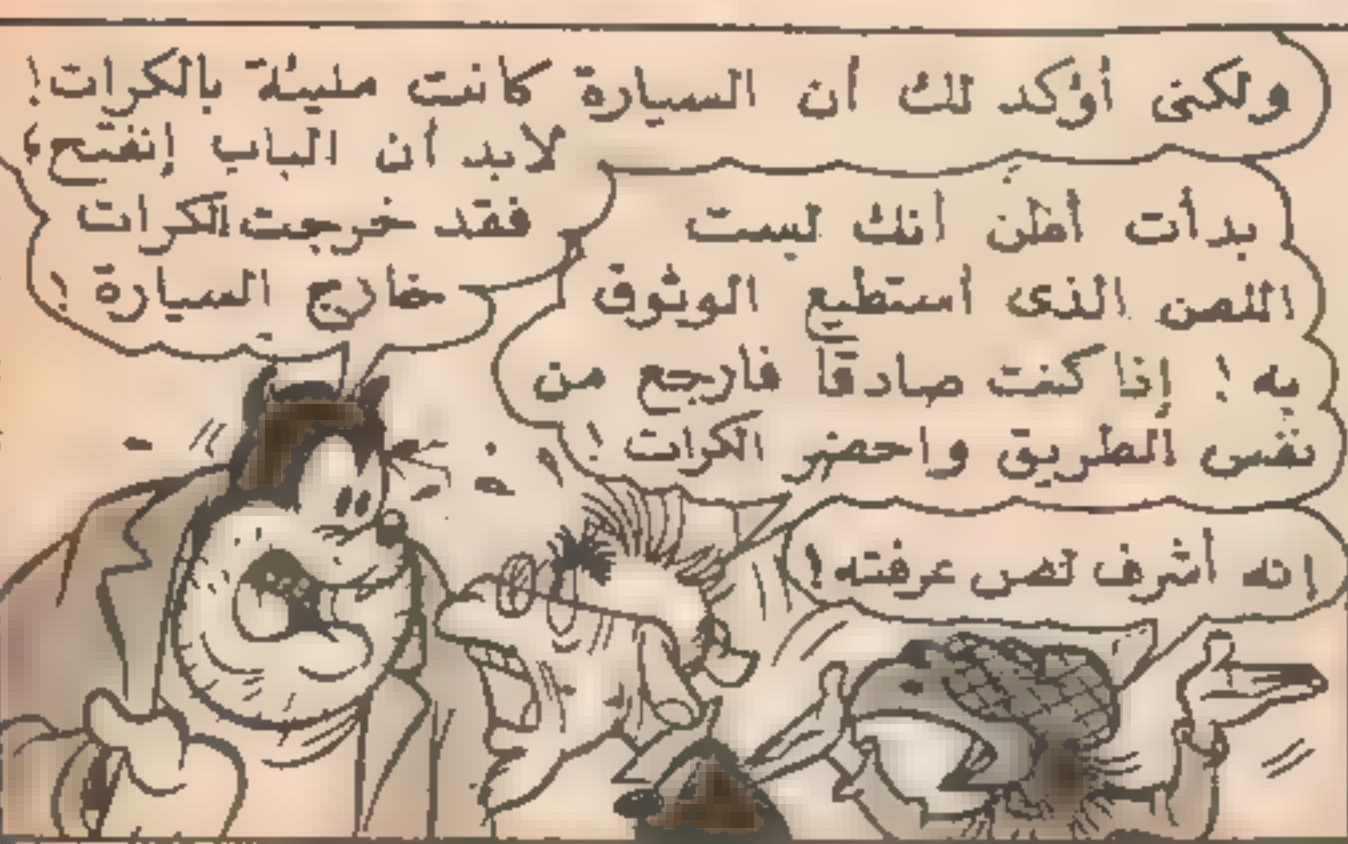 ولكنى أؤكد لك أن السيارة كانت مليئة بالكرات!
لابد أن الباب إنفتح،
فقد خرجت الكرات
خارج السيارة!
بدأت أظن أنك لست
اللص الذى أستطيع الوثوق
به! إذا كنت صادقاً فارجع من
نفس الطريق واحضر الكرات!
إنه أشرف لص عرفته!